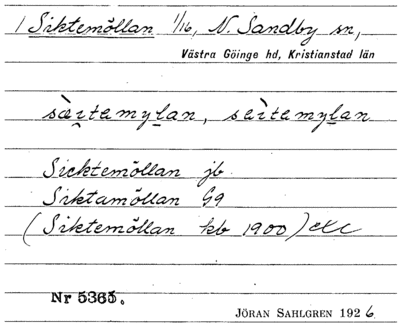 / Siktemöllan 1/16, N. Sandby sn,
Västra Göinge hd, Kristianstad län
sæ̀ıtamyḷan, seìtamyḷan
Sicktemöllan jb
Siktamöllan G9
(Siktemöllan kb 1900) etc
Nr 5365.
JÖRAN SAHLGREN 1926